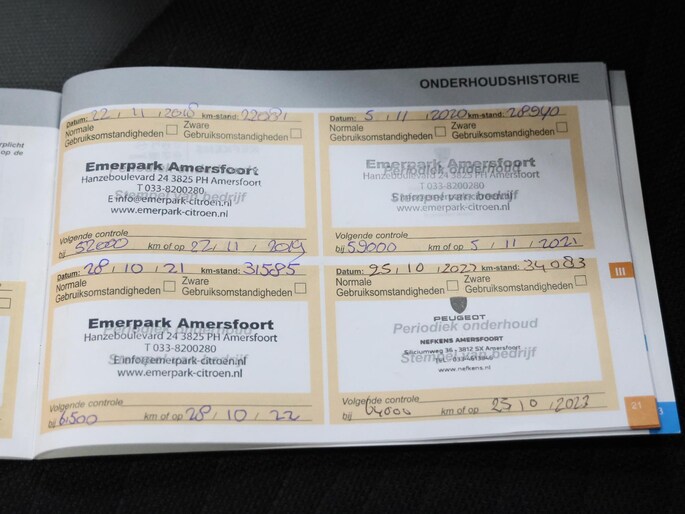 rplicht
op de
ONDERHOUDSHISTORIE
Datum: 22 / 11 / 2018 km-stand: 22081
Normale Gebruiksomstandigheden
Zware Gebruiksomstandigheden
Periodiek onderhoud
Stempel van bedrijf
Emerpark Amersfoort
Hanzeboulevard 24 3825 PH Amersfoort
T 033-8200280
E info@emerpark-citroen.nl
www.emerpark-citroen.nl
Volgende controle
bij 52000 km of op 22 / 11 / 2019
Datum: 5 / 11 / 2020 km-stand: 28940
Normale Gebruiksomstandigheden
Zware Gebruiksomstandigheden
Periodiek onderhoud
Stempel van bedrijf
Emerpark Amersfoort
Hanzeboulevard 24 3825 PH Amersfoort
T 033-8200280
www.emerpark-citroen.nl
Volgende controle
bij 59000 km of op 5 / 11 / 2021
Datum: 28 / 10 / 21 km-stand: 31585
Normale Gebruiksomstandigheden
Zware Gebruiksomstandigheden
Periodiek onderhoud
Stempel van bedrijf
Emerpark Amersfoort
Hanzeboulevard 24 3825 PH Amersfoort
T 033-8200280
E info@emerpark-citroen.nl
www.emerpark-citroen.nl
Volgende controle
bij 61500 km of op 28 / 10 / 22
Datum: 25 / 10 / 2022 km-stand: 34083
Normale Gebruiksomstandigheden
Zware Gebruiksomstandigheden
PEUGEOT
Periodiek onderhoud
NEFKENS AMERSFOORT
Siliciumweg 35 - 3812 SX Amersfoort
Stempel van bedrijf
www.nefkens.nl
Volgende controle
bij 64000 km of op 25 / 10 / 2023
III
21
3